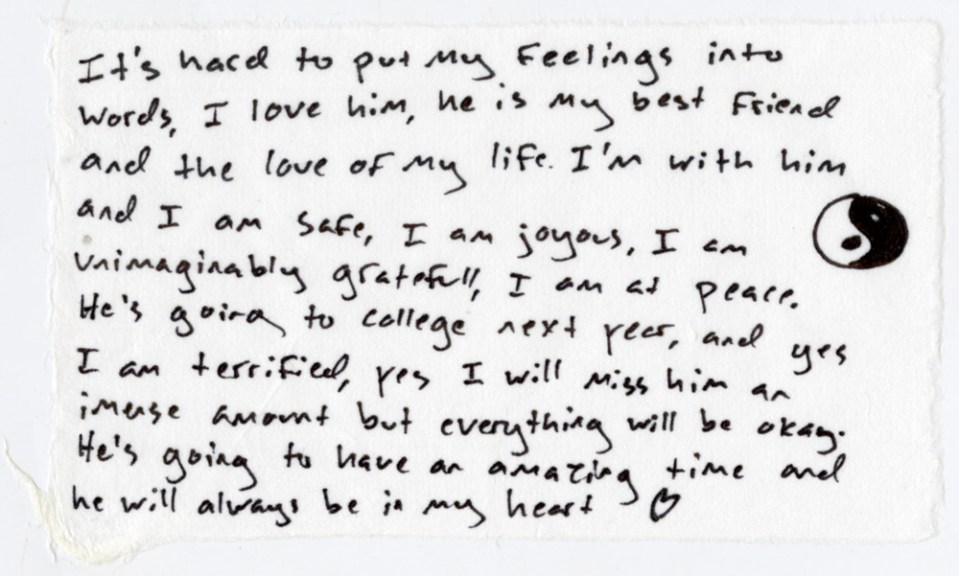 It's hard to put my Feelings into
words, I love him, he is my best Friend
and the love of my life. I'm with him
and I am safe, I am joyous, I am
unimaginably gratefull, I am at peace.
He's going to college next year, and yes
I am terrified, yes I will miss him an
imense amount but everything will be okay.
He's going to have an amazing time and
he will always be in my heart ♡